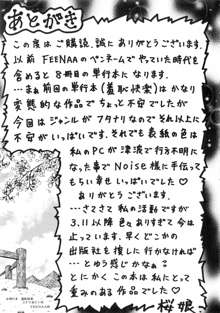 あとがき
この度はご購読、誠にありがとうございます。
以前 FEENAAのペンネームでやっていた時代を
含めると8冊目の単行本になります。
…まぁ前回の単行本(羞恥快楽)はかなり
変態的な作品でちょっと不安でしたが
今回はジャンルがフタナリなのでそれ以上に
不安がいっぱいです。それでも表紙の色は
私のPCが津波で行方不明に
なった事でNoise様に手伝って
もらい幸せいっぱいでした♡
ありがとうございます。
…さてさて私の活動ですが
3.11以降色々ありすぎて今は
止っています。早くどこかの
出版社を探しに行かなければ
…とゆう感じかなぁ?
とにかくこの本は私にとって
重みのある作品でした♡
桜娘